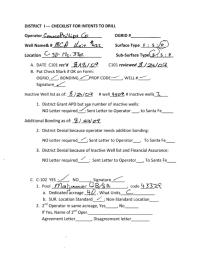 DISTRICT I — CHECKLIST FOR INTENTS TO DRILL
Operator ConocoPhillips Co OGRID#
Well Name& # MCA Unit Surface Type F S P
Location Sub-Surface Type F S P
A. DATE C101 rec'd C101 reviewed
B. Put Check Mark if OK on Form:
OGRID BONDING PROP CODE WELL #
Signature
Inactive Well list as of: # well # Inactive wells
1. District Grant APD but see number of inactive wells:
NO Letter required ✓ Sent Letter to Operator to Santa Fe
Additional Bonding as of
2. District Denial because operator needs addition bonding:
NO Letter required ✓; Sent Letter to Operator To Santa Fe
3. District Denial because of Inactive Well list and Financial Assurance:
NO Letter required ✓; Sent Letter to Operator To Santa Fe
C. C-102 YES ✓ NO Signature
1. Pool Maljamar code 43329
a. Dedicated acreage 40, What Units
b. SUR. Location Standard ✓; Non-Standard Location
2. 2nd Operator in same acreage, Yes No
If Yes, Name of 2nd Oper.
Agreement Letter Disagreement letter